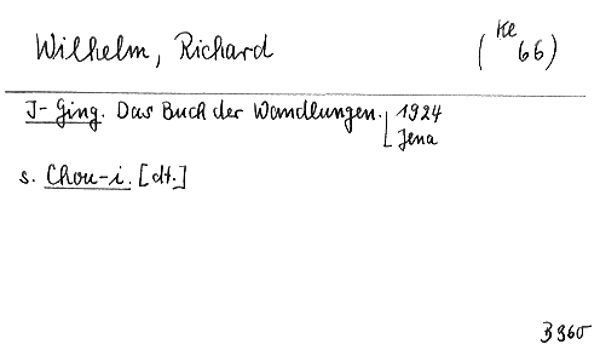 Wilhelm, Richard (Ke 66)
I-Ging. Das Buch der Wandlungen. 1924
Jena
s. Chou-i. [dt.]
B 960